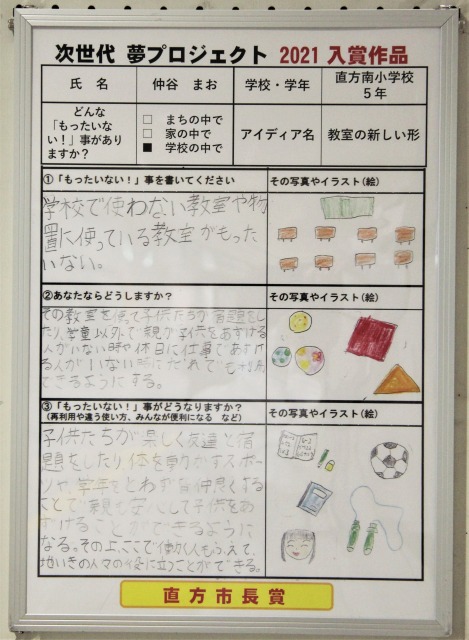 次世代 夢プロジェクト 2021 入賞作品
氏 名
仲谷 まお
学校・学年
直方南小学校
5年
どんな
「もったいな
い！」事があり
ますか？
□ まちの中で
□ 家の中で
■ 学校の中で
アイディア名
教室の新しい形
①「もったいない！」事を書いてください
その写真やイラスト(絵)
学校で使わない教室や物
置に使っている教室がもった
いない。
②あなたならどうしますか？
その写真やイラスト(絵)
その教室を使って子供たちが宿題をし
たり、学童以外で親が子供をあずける
人がいない時や休日に仕事であずけ
る人がいない時にだれでも利用
できるようにする。
③「もったいない！」事がどうなりますか？
(再利用や違う使い方、みんなが便利になる など)
その写真やイラスト(絵)
子供たちが楽しく友達と宿
題をしたり体を動かすスポー
ツや、学年をとわず皆仲良くする
ことで親も安心して子供をあ
ずけることができるように
なる。その上、ここで働く人もふえて、
地いきの人々の役に立つことができる。
直方市長賞